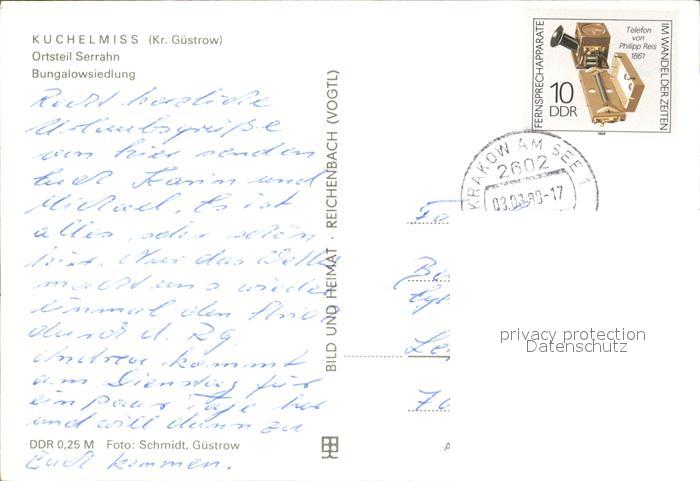 KUCHELMISS (Kr. Güstrow)
Ortsteil Serrahn
Bungalowsiedlung
Recht herzliche
Urlaubsgrüße
von hier senden
Euch Karin und
Michael. Es ist
alles sehr schön
hier. Nur das Wetter
macht uns wieder
einmal den Strich
durch d. Rg
Andrea kommt
am Dienstag für
ein paar Tage her
und will dann zu
Euch kommen.
DDR 0,25 M Foto: Schmidt, Güstrow
BILD UND HEIMAT · REICHENBACH (VOGTL)
FERNSPRECHAPPARATE
IM WANDEL DER ZEITEN
Telefon
von
Philipp Reis
1861
10
DDR
KRAKOW AM SEE 1
2602
03.08.90-17
privacy protection
Datenschutz